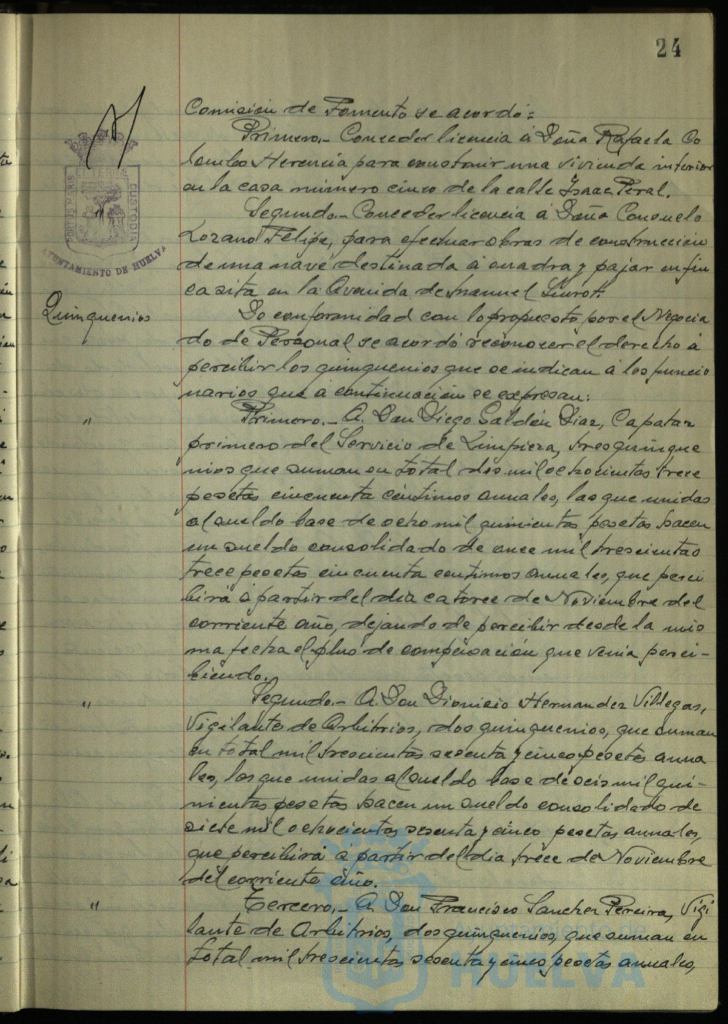 24
Comisión de Fomento se acordó:
Primero.- Conceder licencia á Doña Rafaela Co
lombo Herencia para construir una vivienda interior
en la casa número cinco de la calle Isaac Peral.
Segundo.- Conceder licencia á Doña Consuelo
Lozano Felipe, para efectuar obras de construcción
de una nave destinada á cuadra y pajar en fin
ca sita en la Avenida de Manuel Siurot.
AYUNTAMIENTO DE HUELVA
Quinquenios
De conformidad con lo propuesto por el Negocia
do de Personal se acordó reconocer el derecho á
percibir los quinquenios que se indican á los funcio
narios que á continuación se expresan:
" Primero.- A Don Diego Galdón Diaz, Capataz
primero del Servicio de Limpieza, tres quinque
nios que suman en total dos mil ochocientas trece
pesetas cincuenta céntimos anuales, las que unidas
al sueldo base de ocho mil quinientas pesetas hacen
un sueldo consolidado de once mil trescientas
trece pesetas cincuenta centimos anuales, que perci
birá á partir del dia catorce de Noviembre del
corriente año, dejando de percibir desde la mis
ma fecha el plus de compensación que venia perci-
biendo.
" Segundo.- A Don Dionisio Hernandez Villegas,
Vigilante de Arbitrios, dos quinquenios, que suman
en total mil trescientas sesenta y cinco pesetas anua
les, las que unidas al sueldo base de seis mil qui-
nientas pesetas hacen un sueldo consolidado de
siete mil ochocientas sesenta y cinco pesetas anuales,
que percibirá á partir del dia trece de Noviembre
del corriente año.
" Tercero.- A Don Francisco Sanchez Pereira, Vigi
lante de Arbitrios, dos quinquenios, que suman en
total mil trescientas sesenta y cinco pesetas anuales,
HUELVA